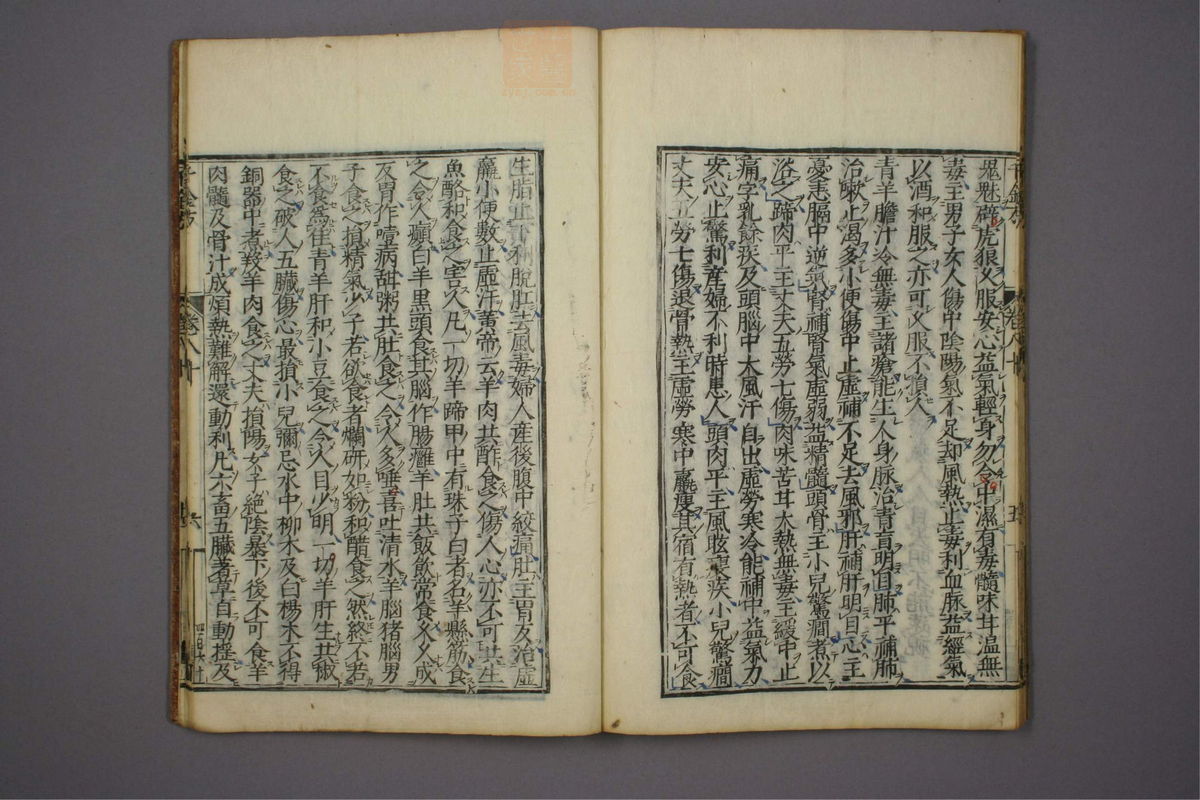 鬼魅辟虎狼久服安心益氣輕身勿令中濕有毒髓味甘温無
毒主男子女人傷中陰陽氣不足却風熱止毒利血脉益經氣
以酒和服之亦可久服不損人
青羊膽汁冷無毒主諸瘡能生人身脉治青盲明目肺平補肺
治嗽止渴多小便傷中止虚補不足去風邪肝補肝明目心主
憂恚膈中逆氣腎補腎氣虚弱益精髓頭骨主小兒驚癎煮以
浴之蹄肉平主丈夫五勞七傷肉味苦甘大熱無毒主緩中止
痛字乳餘疾及頭腦中大風汗自出虚勞寒冷能補中益氣力
安心止驚利産婦不利時患人頭肉平主風眩瘦疾小兒驚癎
丈夫五勞七傷退骨熱主虚勞寒中羸瘦其宿有熱者不可食
生脂止下利脫肛去風毒婦人産後腹中絞痛肚主胃反治虚
羸小便數止虚汗黃帝云羊肉共酢食之傷人心亦不可共生
魚酪和食之害人凡一切羊蹄甲中有珠子白者名羊懸筋食
之令人癲白羊黑頭食其腦作腸癰羊肚共飯飲常食久久成
反胃作噎病甜粥共肚食之令人多唾喜吐清水羊腦猪腦男
子食之損精氣少子若欲食者爛研如粉和醋食之然終不若
不食爲佳青羊肝和小豆食之令人目少明一切羊肝生共椒
食之破人五臟傷心最損小兒彌忌水中柳木及白楊木不得
銅器中煮羖羊肉食之丈夫損陽女子絶陰暴下後不可食羊
肉髓及骨汁成煩熱難解還動利凡六畜五臟著草自動搖及